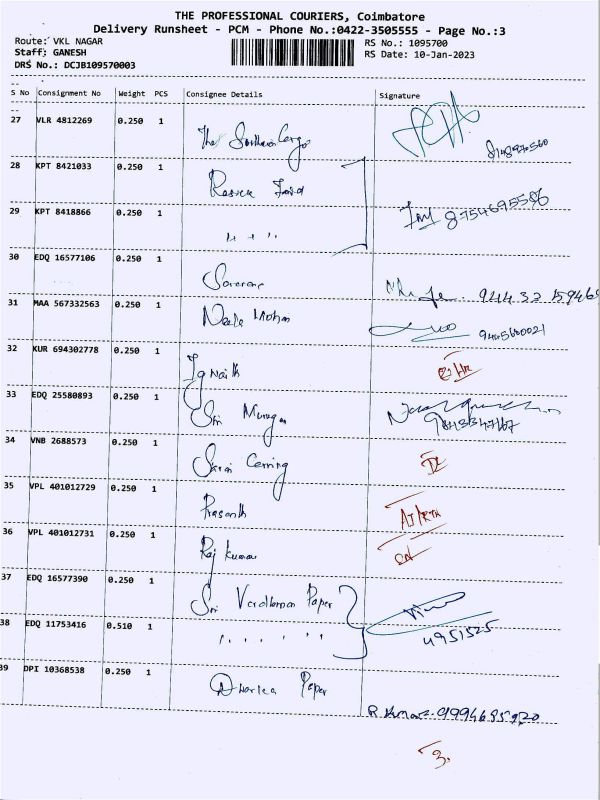 THE PROFESSIONAL COURIERS, Coimbatore
Delivery Runsheet - PCM - Phone No.:0422-3505555 - Page No.:3
Route: VKL NAGAR RS No.: 1095700
Staff: GANESH RS Date: 10-Jan-2023
DRS No.: DCJB109570003
S No Consignment No Weight PCS Consignee Details Signature
27 VLR 4812269 0.250 1 The Southern Cargo
28 KPT 8421033 0.250 1
29 KPT 8418866 0.250 1 " " " 8754695586
30 EDQ 16577106 0.250 1 94432 59468
31 MAA 567332563 0.250 1 Mohan 9445600021
32 KUR 694302778 0.250 1
33 EDQ 25580893 0.250 1 Sri Murugan
34 VNB 2688573 0.250 1
35 VPL 401012729 0.250 1 Prasanth
36 VPL 401012731 0.250 1 Raj kumar
37 EDQ 16577390 0.250 1 Sri Vardhaman Paper
38 EDQ 11753416 0.510 1 " " " " " 4951525
39 DPI 10368538 0.250 1 Paper
R Kumar 9994685920
3